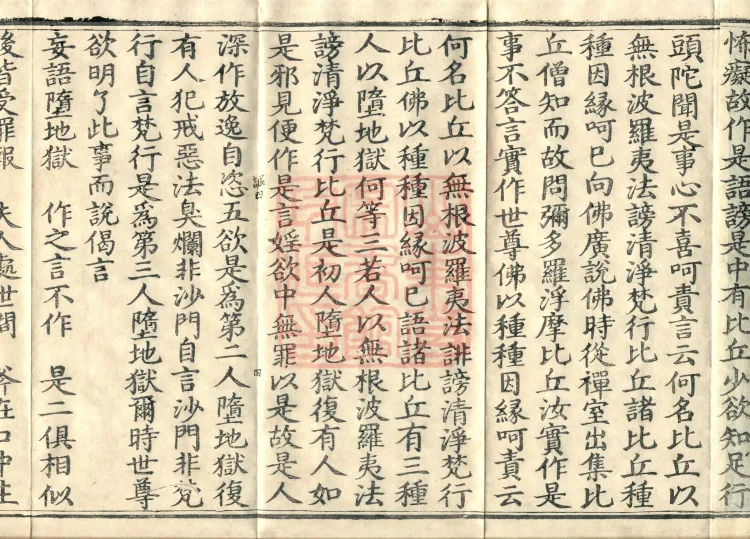 怖癡故作是語謗是中有比丘少欲知足行
頭陀聞是事心不喜呵責言云何名比丘以
無根波羅夷法謗清淨梵行比丘諸比丘種
種因緣呵已向佛廣說佛時從禪室出集比
丘僧知而故問彌多羅浮摩比丘汝實作是
事不答言實作世尊佛以種種因緣呵責云
何名比丘以無根波羅夷法誹謗清淨梵行
比丘佛以種種因緣呵已語諸比丘有三種
人以墮地獄何等三若人以無根波羅夷法
謗清淨梵行比丘是初人墮地獄復有人如
是邪見便作是言婬欲中無罪以是故是人
誠 四 四
深作放逸自恣五欲是為第二人墮地獄復
有人犯戒惡法臭爛非沙門自言沙門非梵
行自言梵行是為第三人墮地獄爾時世尊
欲明了此事而說偈言
妄語墮地獄 作之言不作 是二俱相似
後皆受罪報 夫人處世間 斧在口中生